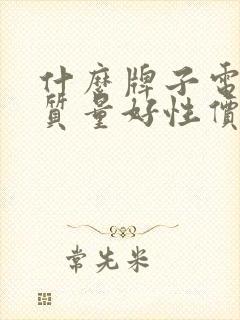 什麼牌子電
質量好性價
常先米